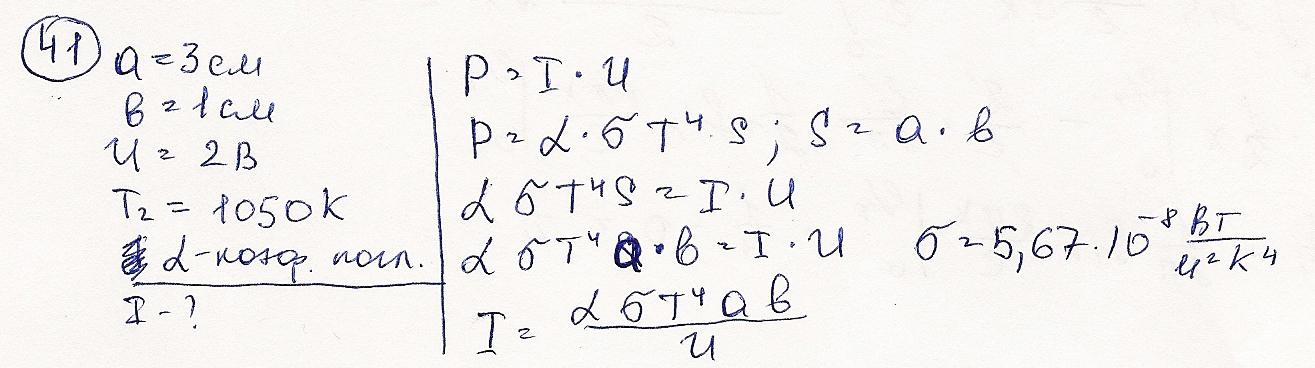 41 a = 3 см
в = 1 см
U = 2 В
T₂ = 1050 К
α - коэф. погл.
I - ?
P = I · U
P = α · σ T⁴ · S ; S = a · в
α σ T⁴ S = I · U
α σ T⁴ a · в = I · U σ = 5,67 · 10⁻⁸ Вт/м²К⁴
I = α σ T⁴ a в / U